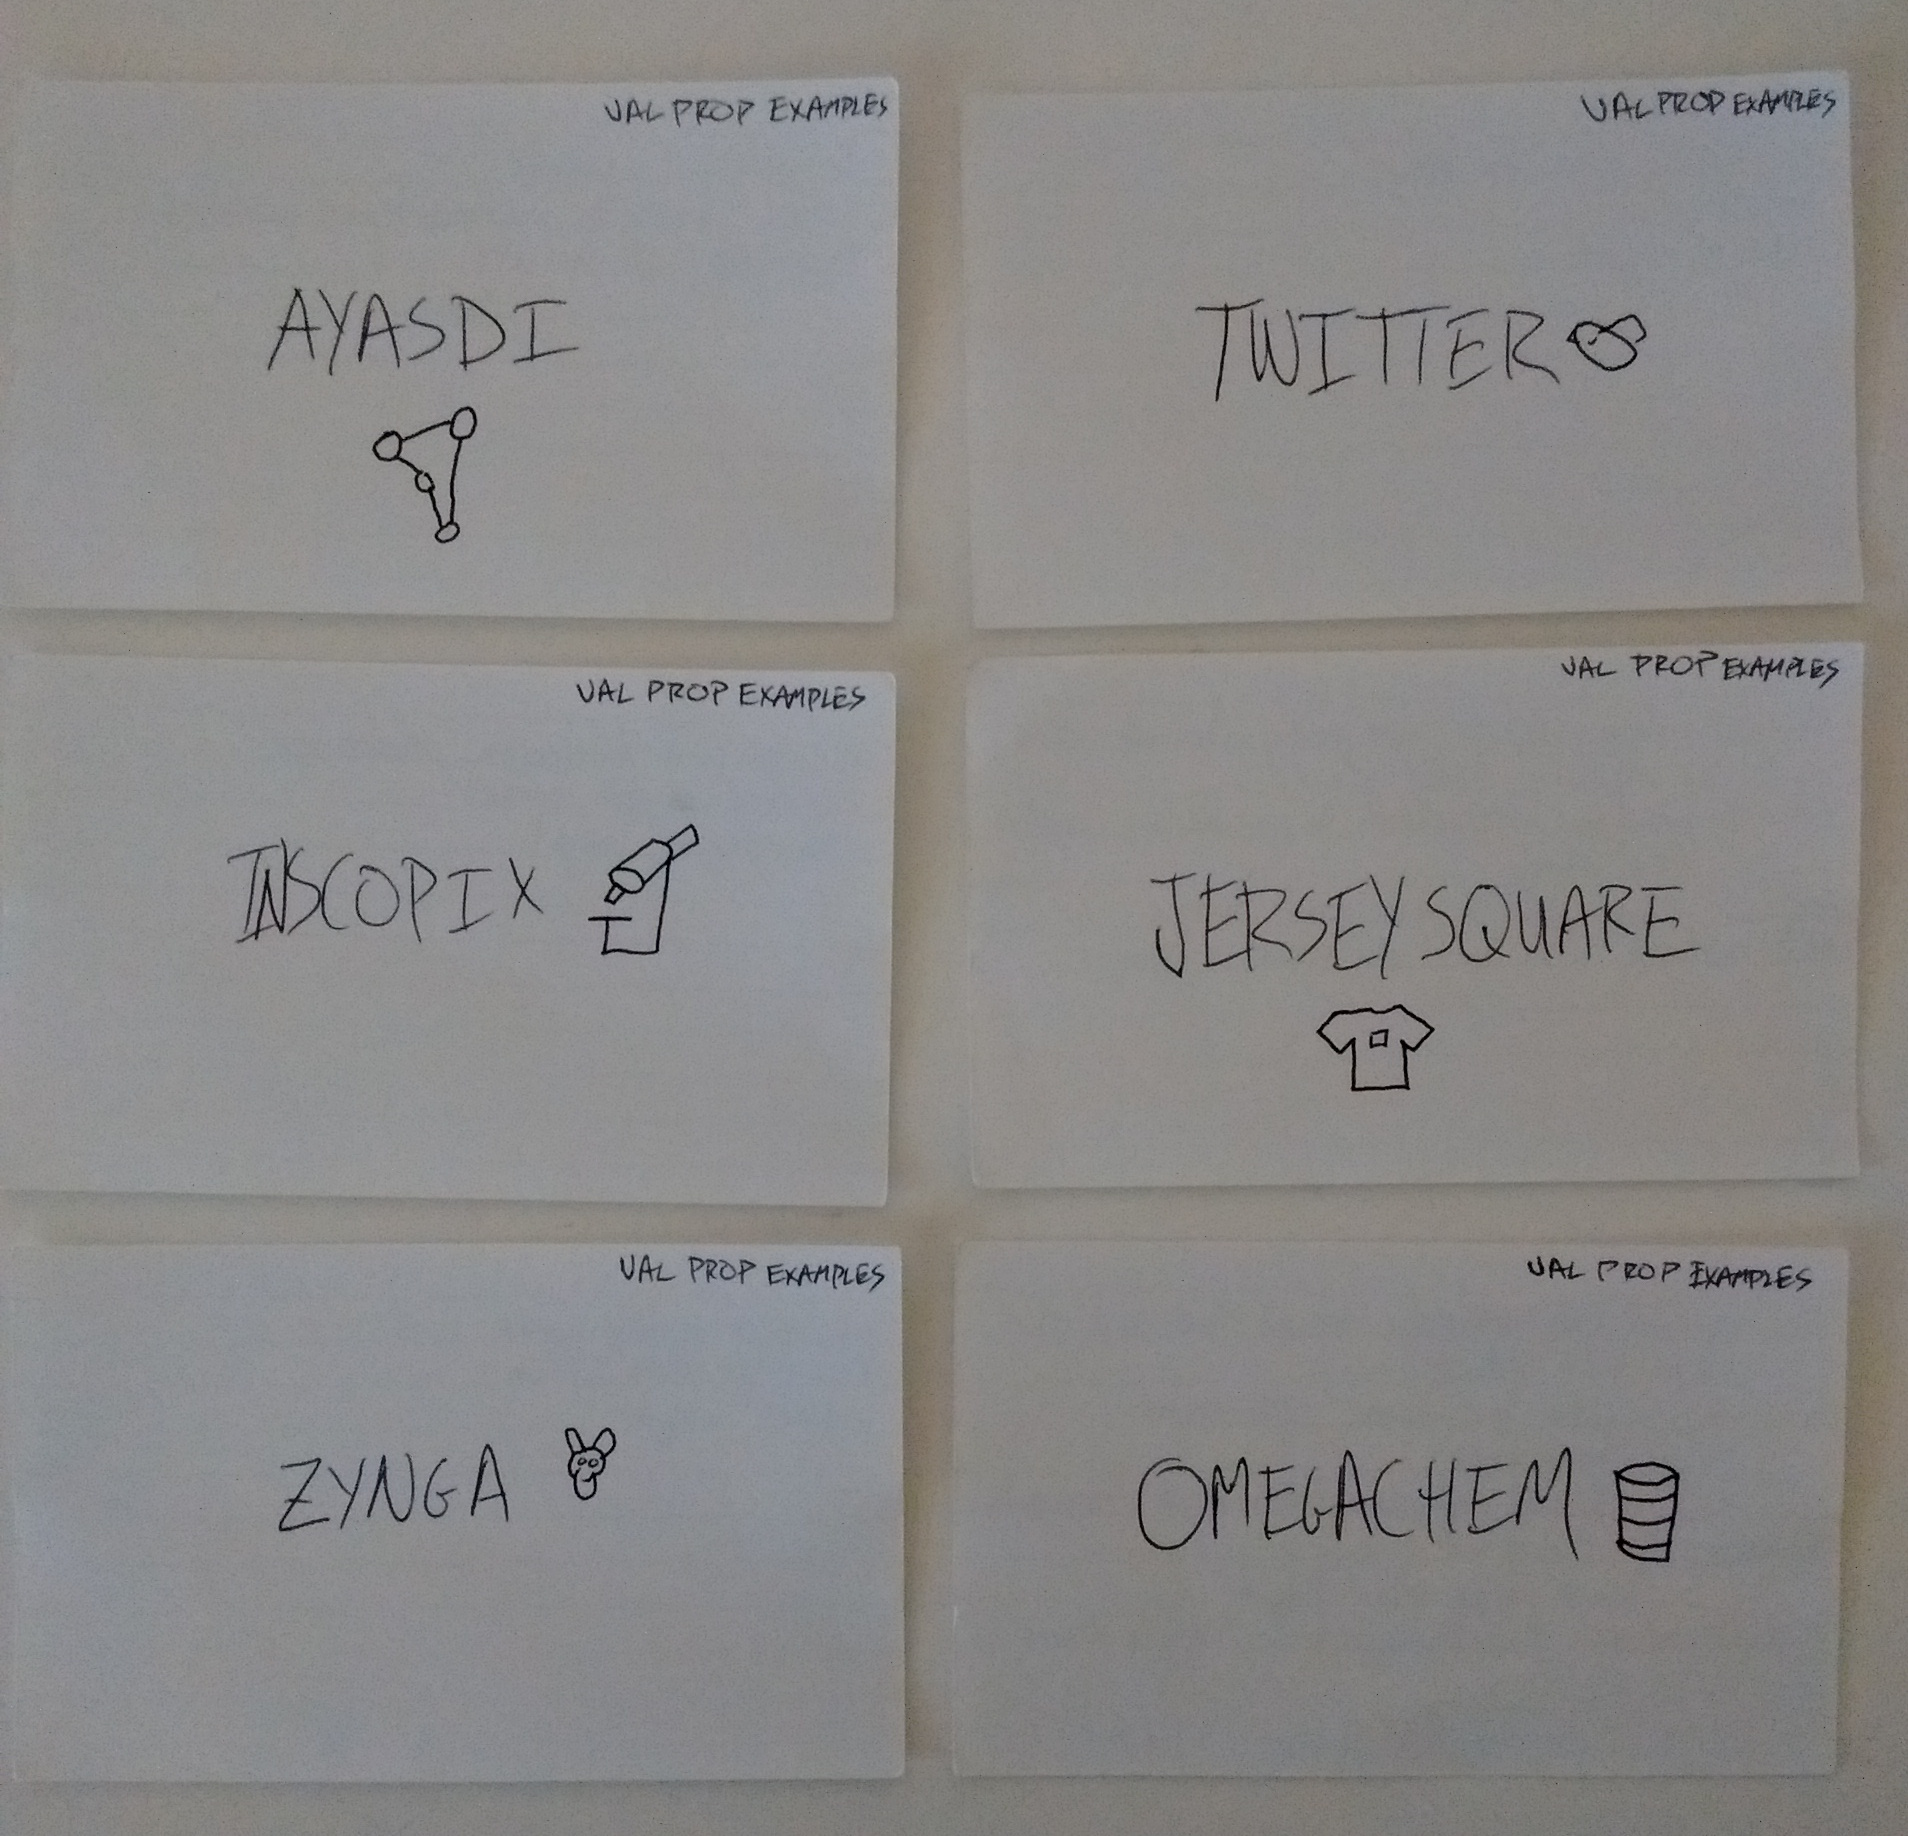 VAL PROP EXAMPLES
AYASDI
VAL PROP EXAMPLES
TWITTER
VAL PROP EXAMPLES
INSCOPIX
VAL PROP EXAMPLES
JERSEY SQUARE
VAL PROP EXAMPLES
ZYNGA
VAL PROP EXAMPLES
OMEGACHEM